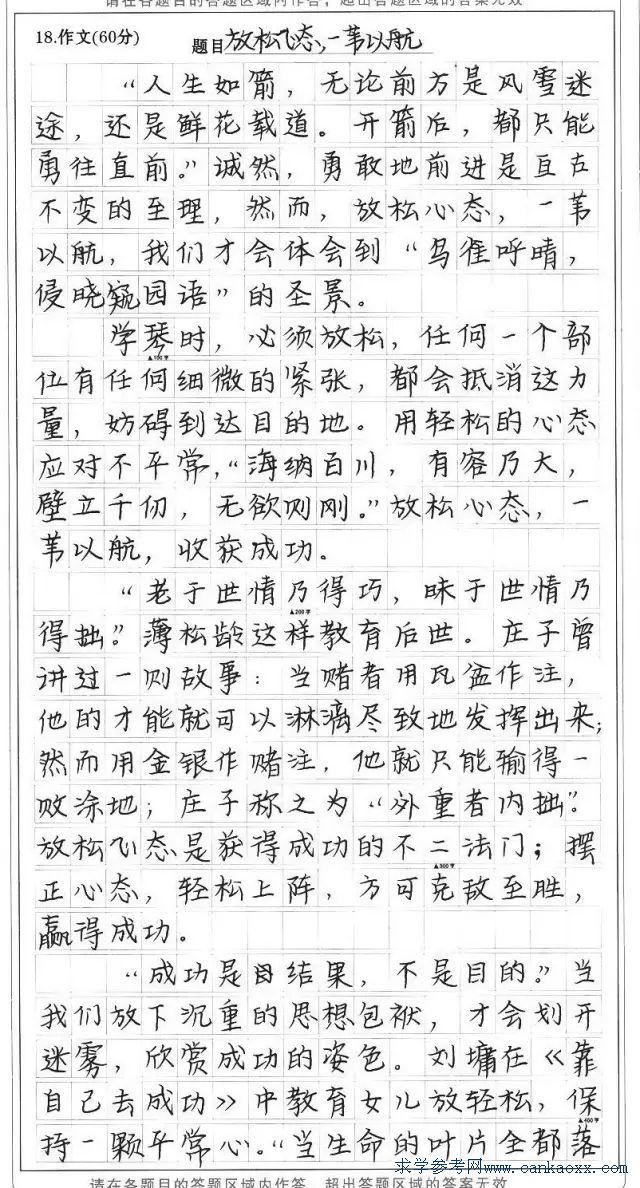 请在各题目的答题区域内作答，超出答题区域的答案无效
18.作文(60分)
题目 放松心态，一苇以航
“人生如箭，无论前方是风雪迷
途，还是鲜花载道。开箭后，都只能
勇往直前。”诚然，勇敢地前进是亘古
不变的至理，然而，放松心态，一苇
以航，我们才会体会到“鸟雀呼晴，
侵晓窥园语”的圣景。
学琴时，必须放松，任何一个部
▲100字
位有任何细微的紧张，都会抵消这力
量，妨碍到达目的地。用轻松的心态
应对不平常，“海纳百川，有容乃大，
壁立千仞，无欲则刚。”放松心态，一
苇以航，收获成功。
“老于世情乃得巧，昧于世情乃
▲200字
得拙。”薄松龄这样教育后世。庄子曾
讲过一则故事：当赌者用瓦盆作注，
他的才能就可以淋漓尽致地发挥出来；
然而用金银作赌注，他就只能输得一
败涂地；庄子称之为“外重者内拙”。
放松心态是获得成功的不二法门；摆
▲300字
正心态，轻松上阵，方可克敌至胜，
赢得成功。
“成功是结果，不是目的。”当
我们放下沉重的思想包袱，才会划开
迷雾，欣赏成功的姿色。刘墉在《靠
自己去成功》中教育女儿放轻松，保
▲400字
持一颗平常心。“当生命的叶片全都落
求学参考网www.cankaoxx.com
请在各题目的答题区域内作答，超出答题区域的答案无效